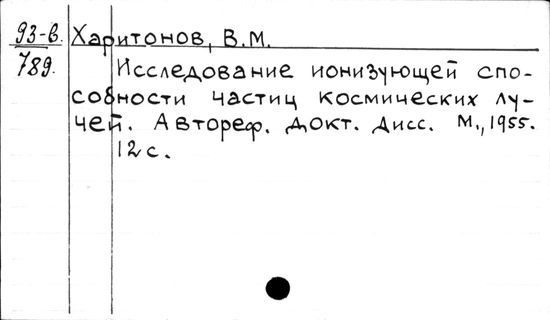 93-в. Харитонов, В.М.
789. Исследование ионизующей спо-
собности частиц космических лу-
чей. Автореф. докт. дисс. М., 1955.
12 с.